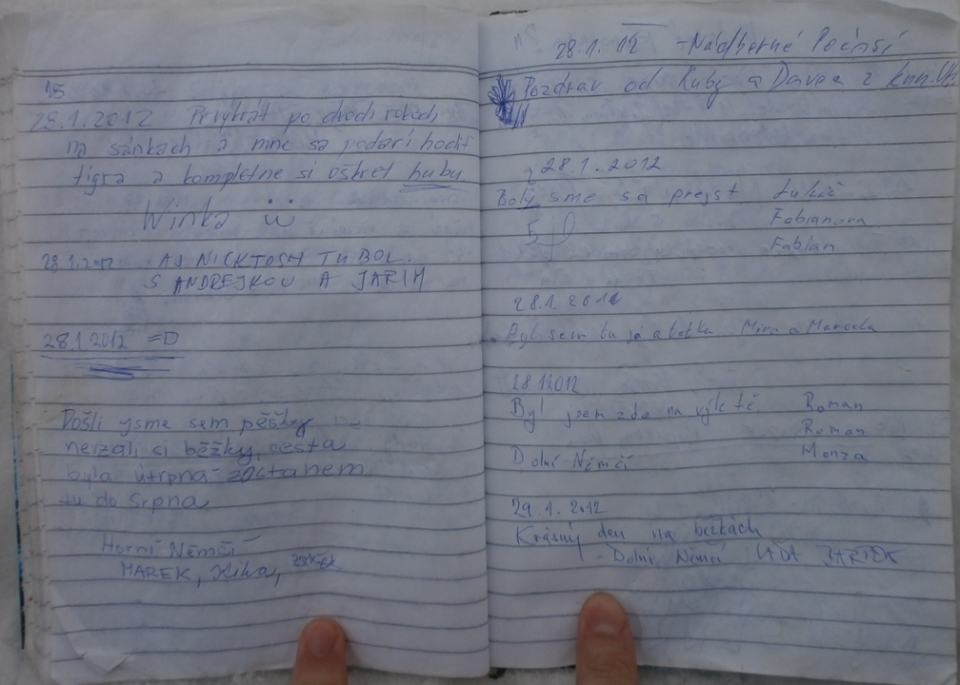 15
28.1.2012 Prvykrát po dvoch rokoch
na sánkach a mne sa podarí hodit
tigra a kompletne si oškret hubu
Winka
28.1.2012 AJ NICKTOSH TU BOL.
S ANDREJKOU A JARIM
28.1.2012 =D
Došli jsme sem pěšky
nevzali si běžky, cesta
byla útrpná zostanem
tu do Srpna
Horní Němčí
MAREK,
28.1.12 - Nádherné Počasí
Pozdrav od Kuby a Davca z
28.1.2012
Boly sme sa prejst Lukáš
Fabianova
Fabian
28.1.2012
Byl sem tu já a tetka Mira a Marcela
28.1.2012
Byl jsem zde na výletě. Roman
Roman
Dolní Němčí Monza
29.1.2012
Krásný den na běžkách
- Dolní Němčí